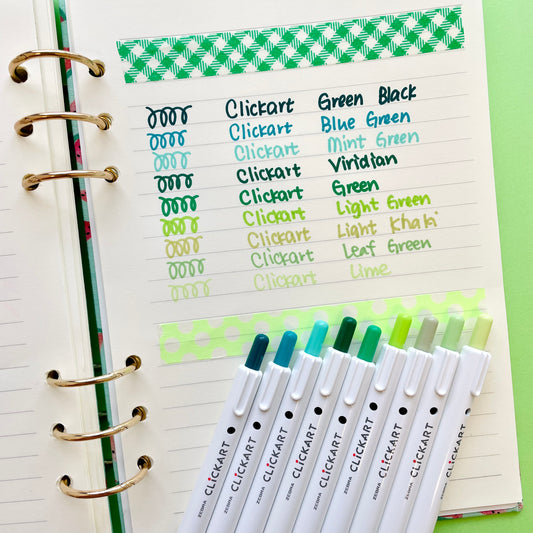 Clickart Green Black
Clickart Blue Green
Clickart Mint Green
Clickart Viridian
Clickart Green
Clickart Light Green
Clickart Light Khaki
Clickart Leaf Green
Clickart Lime
ZEBRA CLiCKART
ZEBRA CLiCKART
ZEBRA CLiCKART
ZEBRA CLiCKART
ZEBRA CLiCKART
ZEBRA CLiCKART
ZEBRA CLiCKART
ZEBRA CLiCKART
ZEBRA CLiCKART